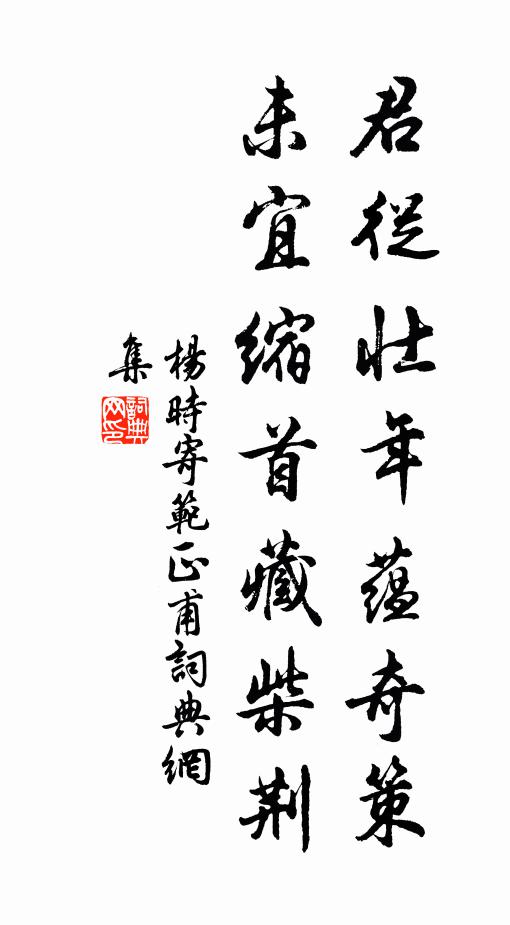 君從壯年蘊奇策
未宜縮首藏柴荆
楊時寄範正甫詞典網
集
詞典
网印